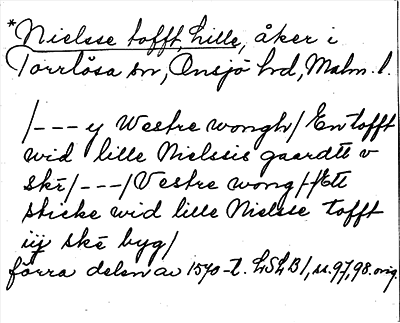 *Nielsse tofft, Lille, åker i
Torrlösa sn, Onsjö hd, Malm. l.
/--- y Westre wongh/ En tofft
wid lille Nielssis gaardtt v
skē/---/Vestre wong/-/Ett
sticke wid lille Nielsse tofft
iij skē byg/
förra delen av 1570-t. LSLB 1, ss. 97, 98. orig.